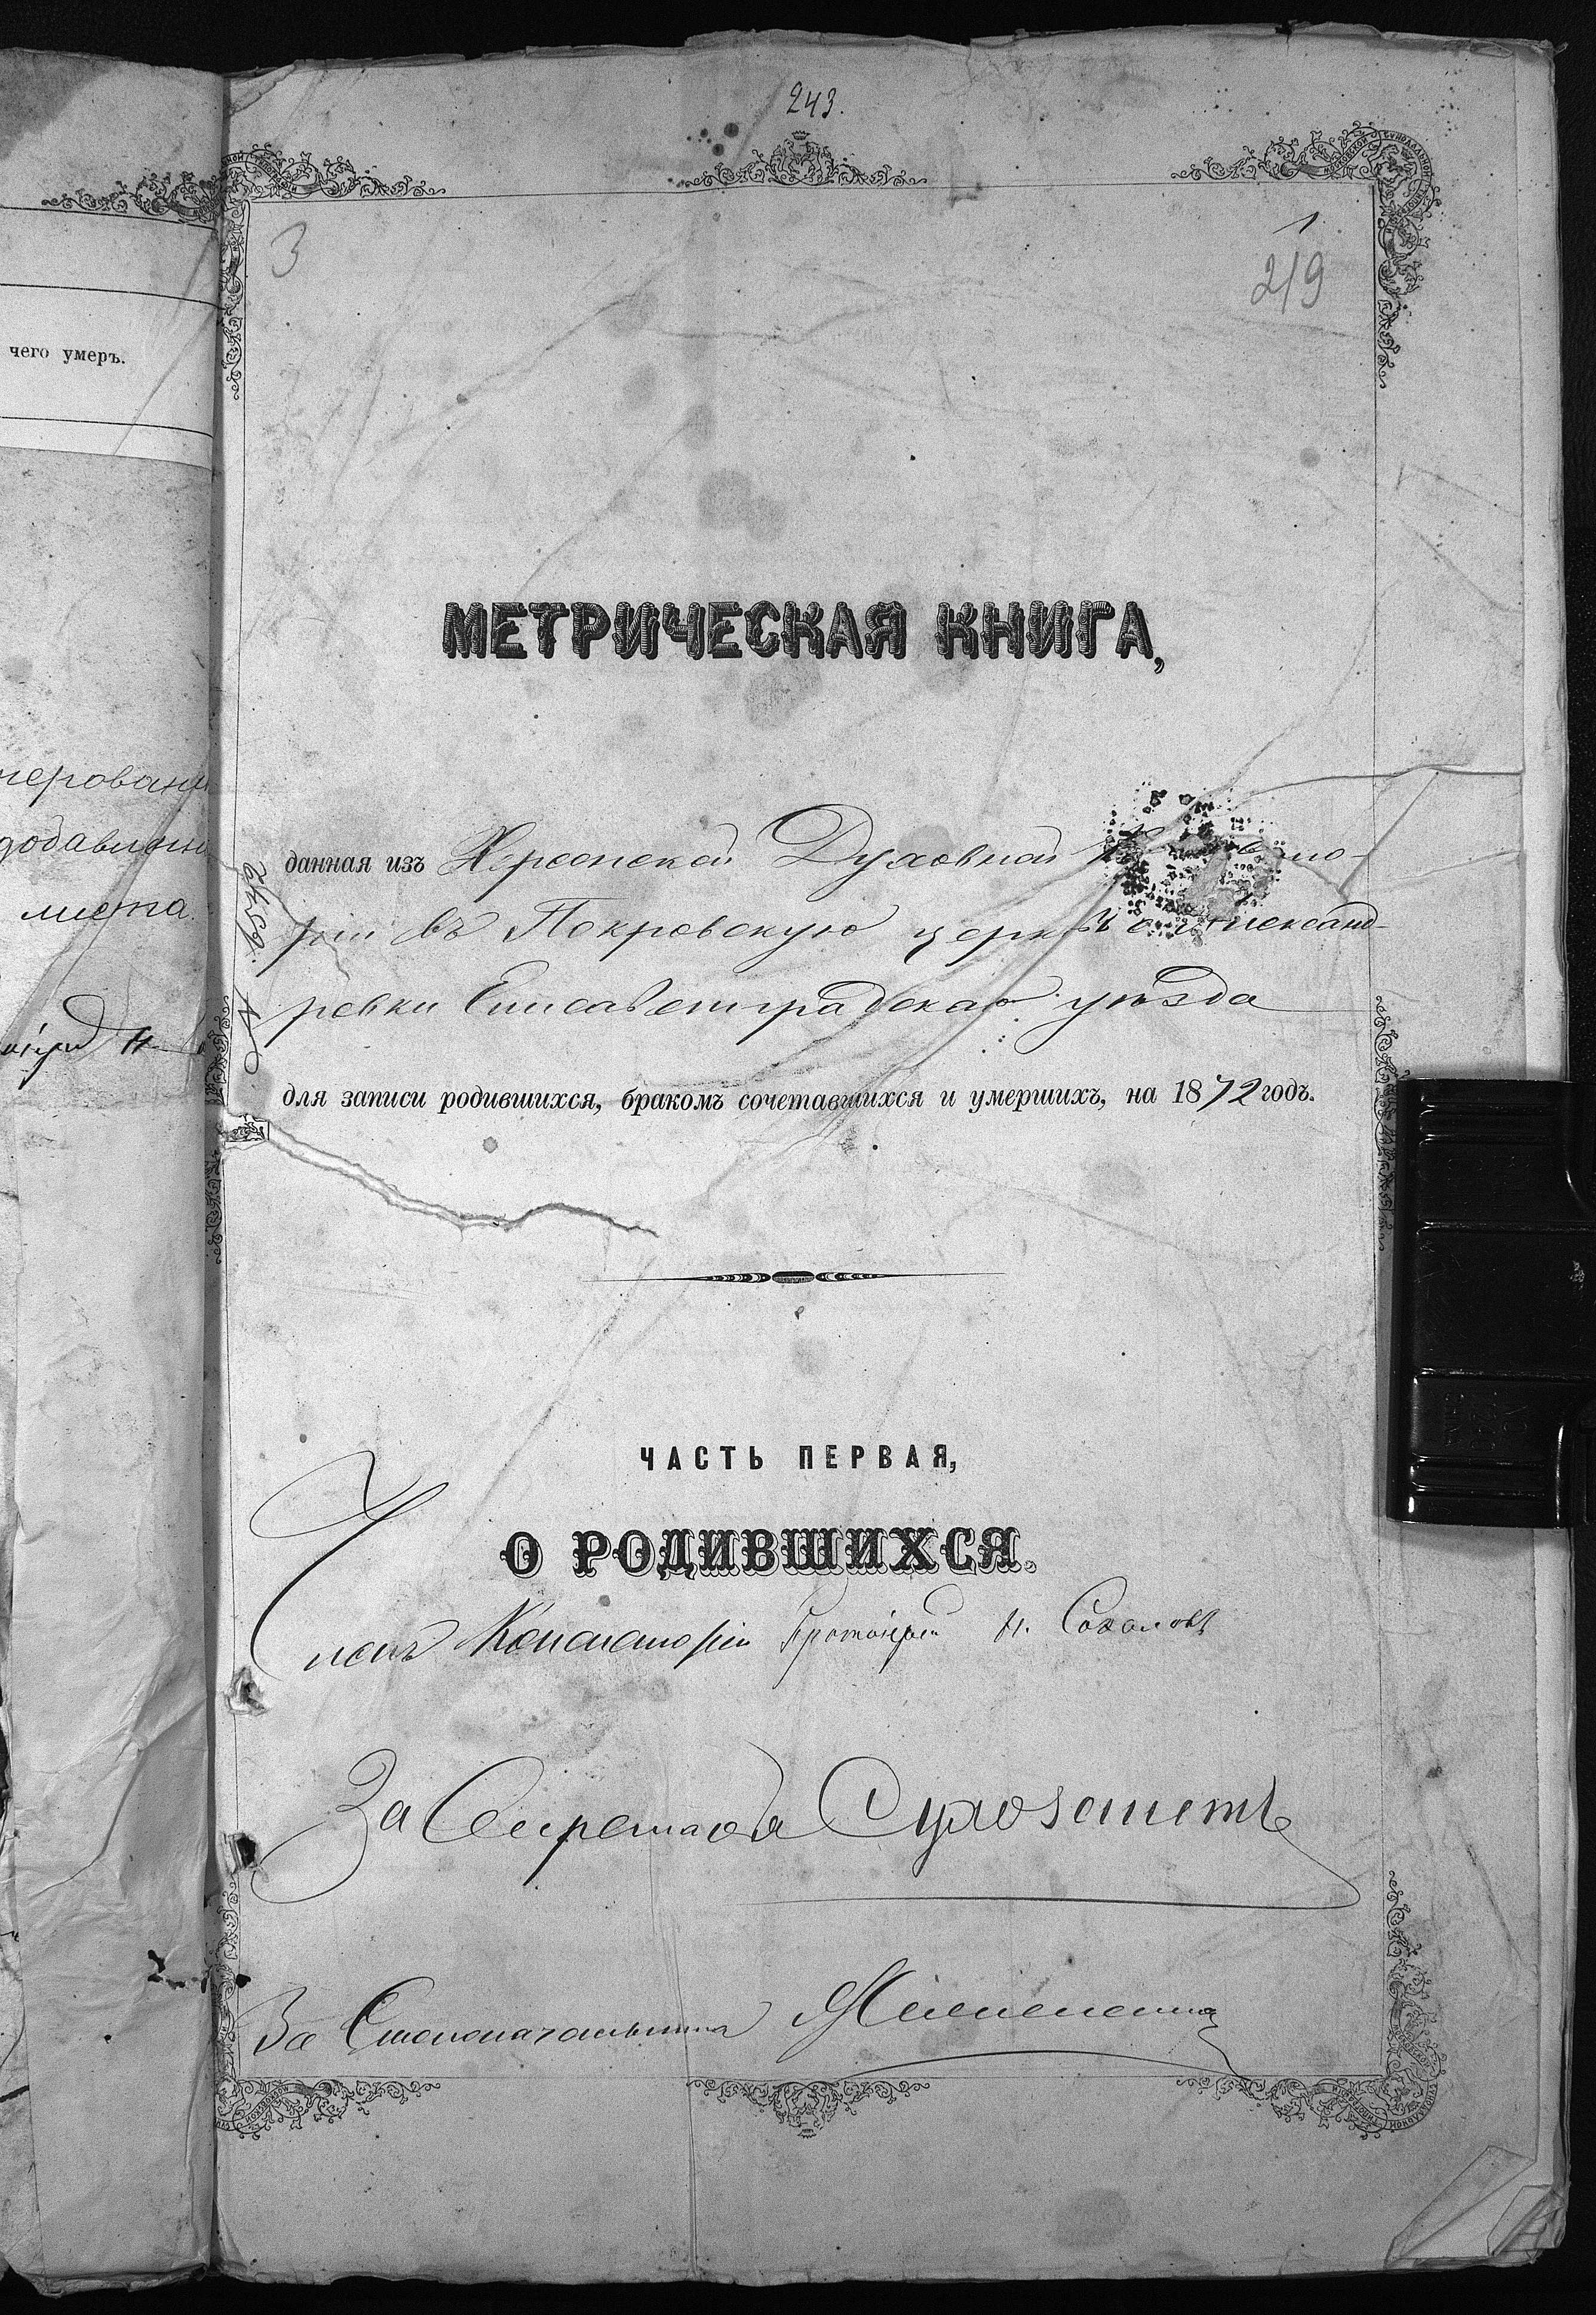 243.
3
1
219
чего умеръ.
МЕТРИЧЕСКАЯ КНИГА,
данная изъ Херсонской Духовной
рiи въ Покровскую церк Александ-
ровки Елисаветградскаго уѣзда
№ 6549.
для записи родившихся, бракомъ сочетавшихся и умершихъ, на 1872 годъ.
листа.
ЧАСТЬ ПЕРВАЯ,
О РОДИВШИХСЯ.
Членъ Консисторiи Протоiерей Н. Соколовъ
За Секретаря
За Столоначальника